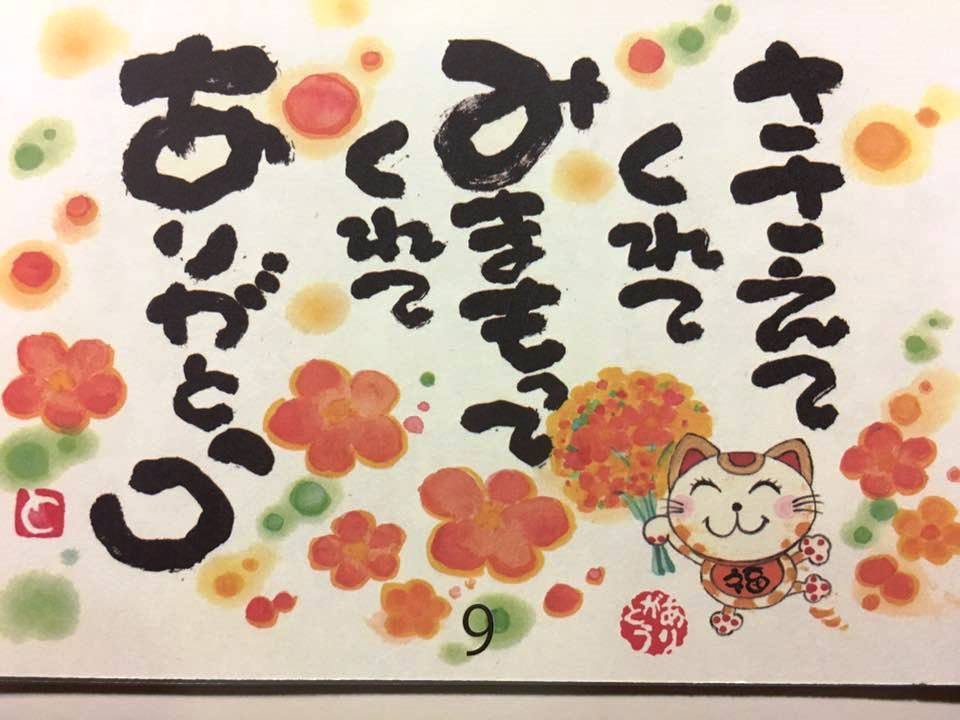 ささえて
くれて
みまもって
くれて
ありがとう
福
ありがとう
と
9